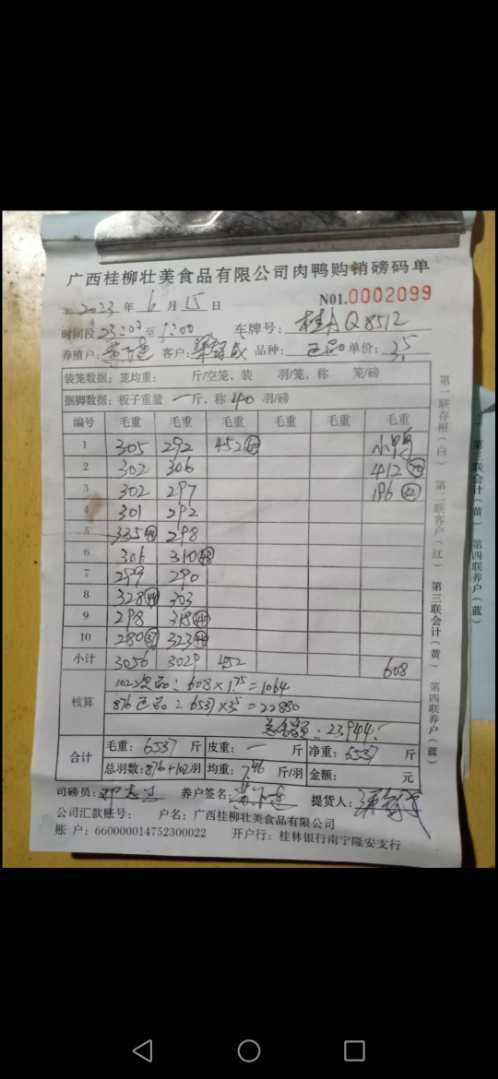 广西桂柳壮美食品有限公司肉鸭购销磅码单
2023年6月15日 N01.0002099
时间段 至 车牌号: Q8512
养殖户: 客户: 品种: 正品 单价: 3.5
装笼数据: 笼均重: 斤/空笼、装 羽/笼、称 笼/磅
捆脚数据: 板子重量 一 斤, 称 40 羽/磅
编号 毛重 毛重 毛重 毛重 毛重 毛重
1 305 292 452 小鸭
2 302 306 412
3 302 297 196
4 301 292
5 335 298
6 306 310
7 299 290
8 328 303
9 298 318
10 280 323
小计 3056 3029 452 608
核算
102次品: 608×1.75=1064
876正品: 6537×3.5=22880
总金额: 23944
合计 毛重: 6537 斤 皮重: 一 斤 净重: 6537 斤
总羽数: 876+102 羽 均重: 7.46 斤/羽 金额: 元
司磅员: 养户签名: 提货人:
公司汇款账号: 户名: 广西桂柳壮美食品有限公司
账 户: 660000014752300022 开户行: 桂林银行南宁隆安支行
第一联存根(白) 第二联客户(红) 第三联会计(黄) 第四联养户(蓝)
第三联会计(黄) 第四联养户(蓝)